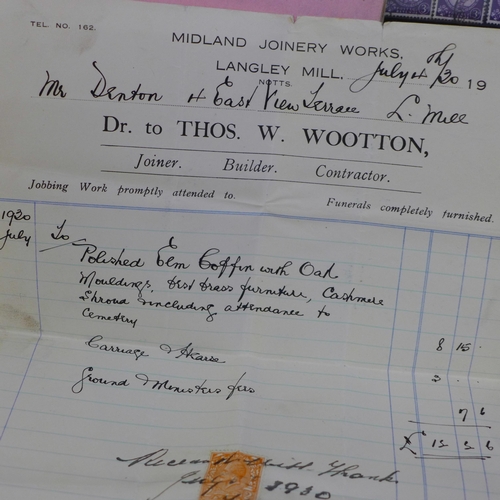 TEL. NO. 162.
MIDLAND JOINERY WORKS,
LANGLEY MILL,
NOTTS.
July 4th /20 19
Mr Denton 4 East View Terrace L. Mill
Dr. to THOS. W. WOOTTON,
Joiner. Builder. Contractor.
Jobbing Work promptly attended to. Funerals completely furnished.
1920
July To
Polished Elm Coffin with Oak
Mouldings, best brass furniture, Cashmere
Shroud including attendance to
Cemetery 8 15 .
Carriage & Hearse
Ground & Ministers fees
7 6
£ 6
Received with Thanks
1920